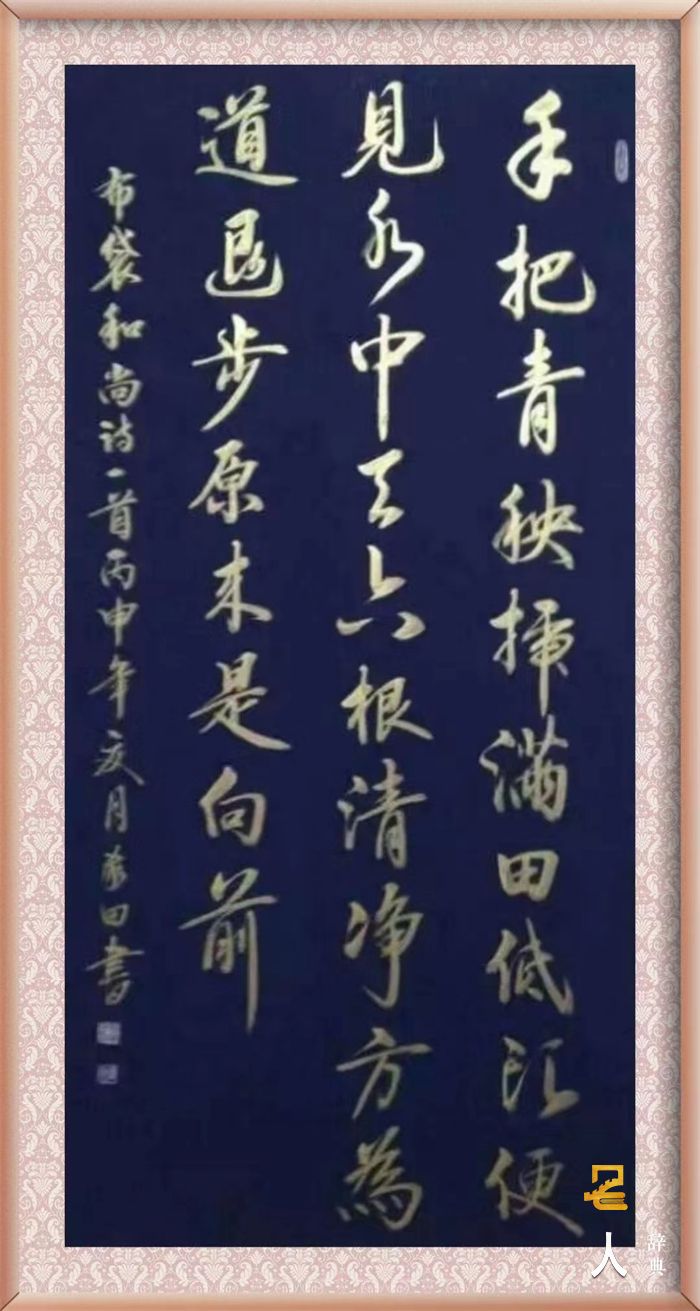 手把青秧插满田低头便
見水中天六根清净方為
道退步原来是向前
布袋和尚诗一首丙申年夏月 田書
名人
辞典